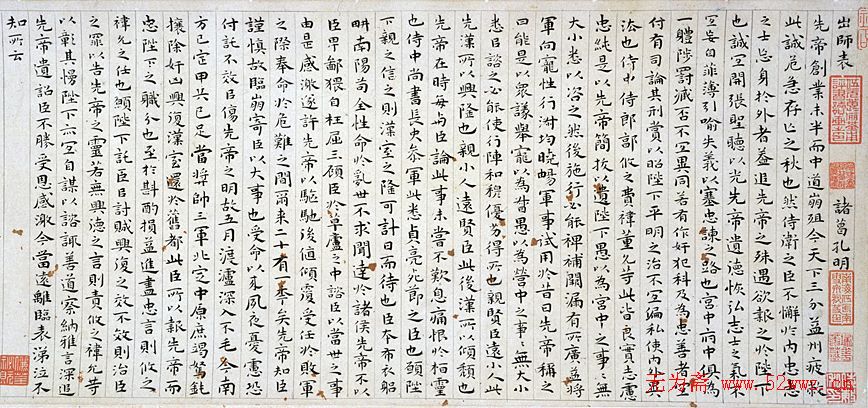 出師表
諸葛孔明
先帝創業未半而中道崩殂今天下三分益州疲敝
此誠危急存亡之秋也然侍衛之臣不懈於內忠志
之士忘身於外者蓋追先帝之殊遇欲報之於陛下
也誠宜開張聖聽以光先帝遺德恢弘志士之氣不
宜妄自菲薄引喻失義以塞忠諫之路也宮中府中俱為
一體陟罰臧否不宜異同若有作奸犯科及為忠善者宜
付有司論其刑賞以昭陛下平明之治不宜偏私使內外異
法也侍中侍郎郭攸之費禕董允等此皆良實志慮
忠純是以先帝簡拔以遺陛下愚以為宮中之事事無
大小悉以咨之然後施行必能裨補闕漏有所廣益將
軍向寵性行淑均曉暢軍事試用於昔日先帝稱之
曰能是以眾議舉寵以為督愚以為營中之事事無大小
悉以諮之必能使行陣和穆優劣得所也親賢臣遠小人此
先漢所以興隆也親小人遠賢臣此後漢所以傾頹也
先帝在時每與臣論此事未嘗不歎息痛恨於桓靈
也侍中尚書長史參軍此悉貞亮死節之臣也願陛
下親之信之則漢室之隆可計日而待也臣本布衣躬
畊南陽苟全性命於亂世不求聞達於諸侯先帝不以
臣卑鄙猥自枉屈三顧臣於草廬之中諮臣以當世之事
由是感激遂許先帝以驅馳後值傾覆受任於敗軍
之際奉命於危難之間爾來二十有一年矣先帝知臣
謹慎故臨崩寄臣以大事也受命以來夙夜憂慮恐
付託不效以傷先帝之明故五月渡瀘深入不毛今南
方已定甲兵已足當獎帥三軍北定中原庶竭駑鈍
攘除奸凶興復漢室還於舊都此臣所以報先帝而
忠陛下之職分也至於斟酌損益進盡忠言則攸之
禕允之任也願陛下託臣以討賊興復之效不效則治臣
之罪以告先帝之靈若無興德之言則責攸之禕允等
以彰其慢陛下亦宜自謀以諮諏善道察納雅言深追
先帝遺詔臣不勝受恩感激今當遠離臨表涕泣不
知所云
无为斋 www.52wwz.com